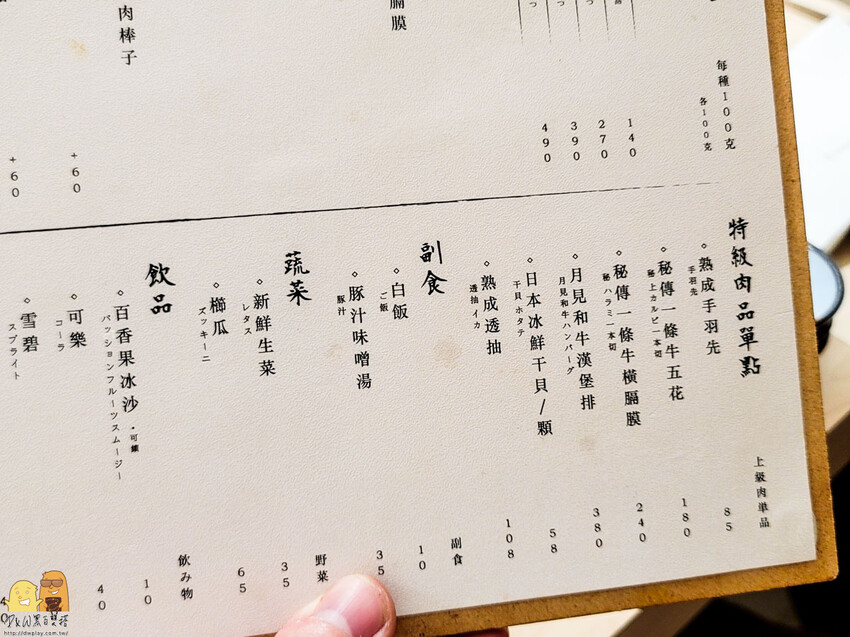 每種100克
各100克
140
270
390
490
膈膜
肉棒子
+60
+60
特級肉品單點 上級肉単品
◇熟成手羽先 85
手羽先
◇秘傳一條牛五花 180
秘上カルビ一本切
◇秘傳一條牛橫膈膜 240
秘ハラミ一本切
◇月見和牛漢堡排 380
月見和牛ハンバーグ
◇日本冰鮮干貝/顆 58
干貝ホタテ
◇熟成透抽 108
透抽イカ
副食 副食
◇白飯 10
ご飯
◇豚汁味噌湯 35
豚汁
蔬菜 野菜
◇新鮮生菜 35
レタス
◇櫛瓜 65
ズッキーニ
飲品 飲み物
◇百香果冰沙・可續 10
パッションフルーツスムージー
◇可樂 40
コーラ
◇雪碧 40
スプライト
http://dwplay.com.tw/